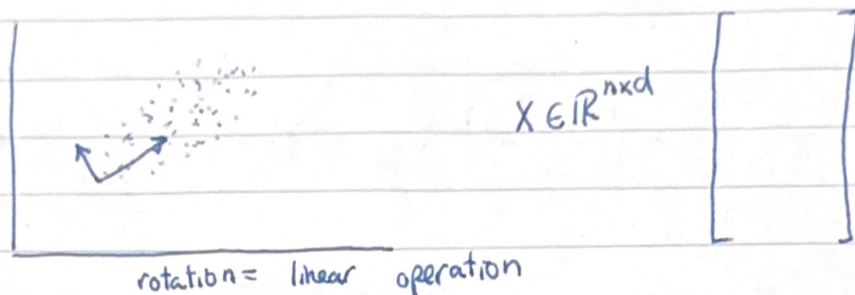 X ∈ ℝ^{n×d}
rotation = linear operation